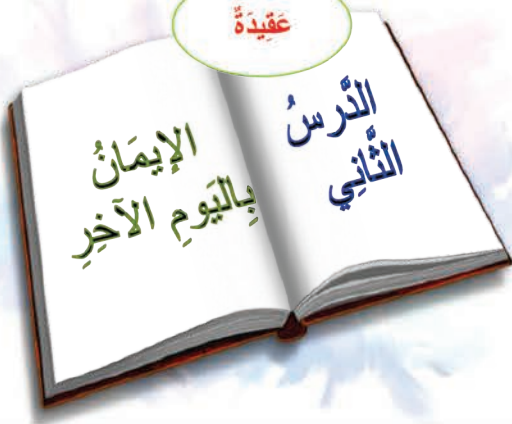 عَقِيدَةٌ
الدَّرسُ
الثَّانِي
الإيمَانُ
بِاليَومِ الآخِرِ